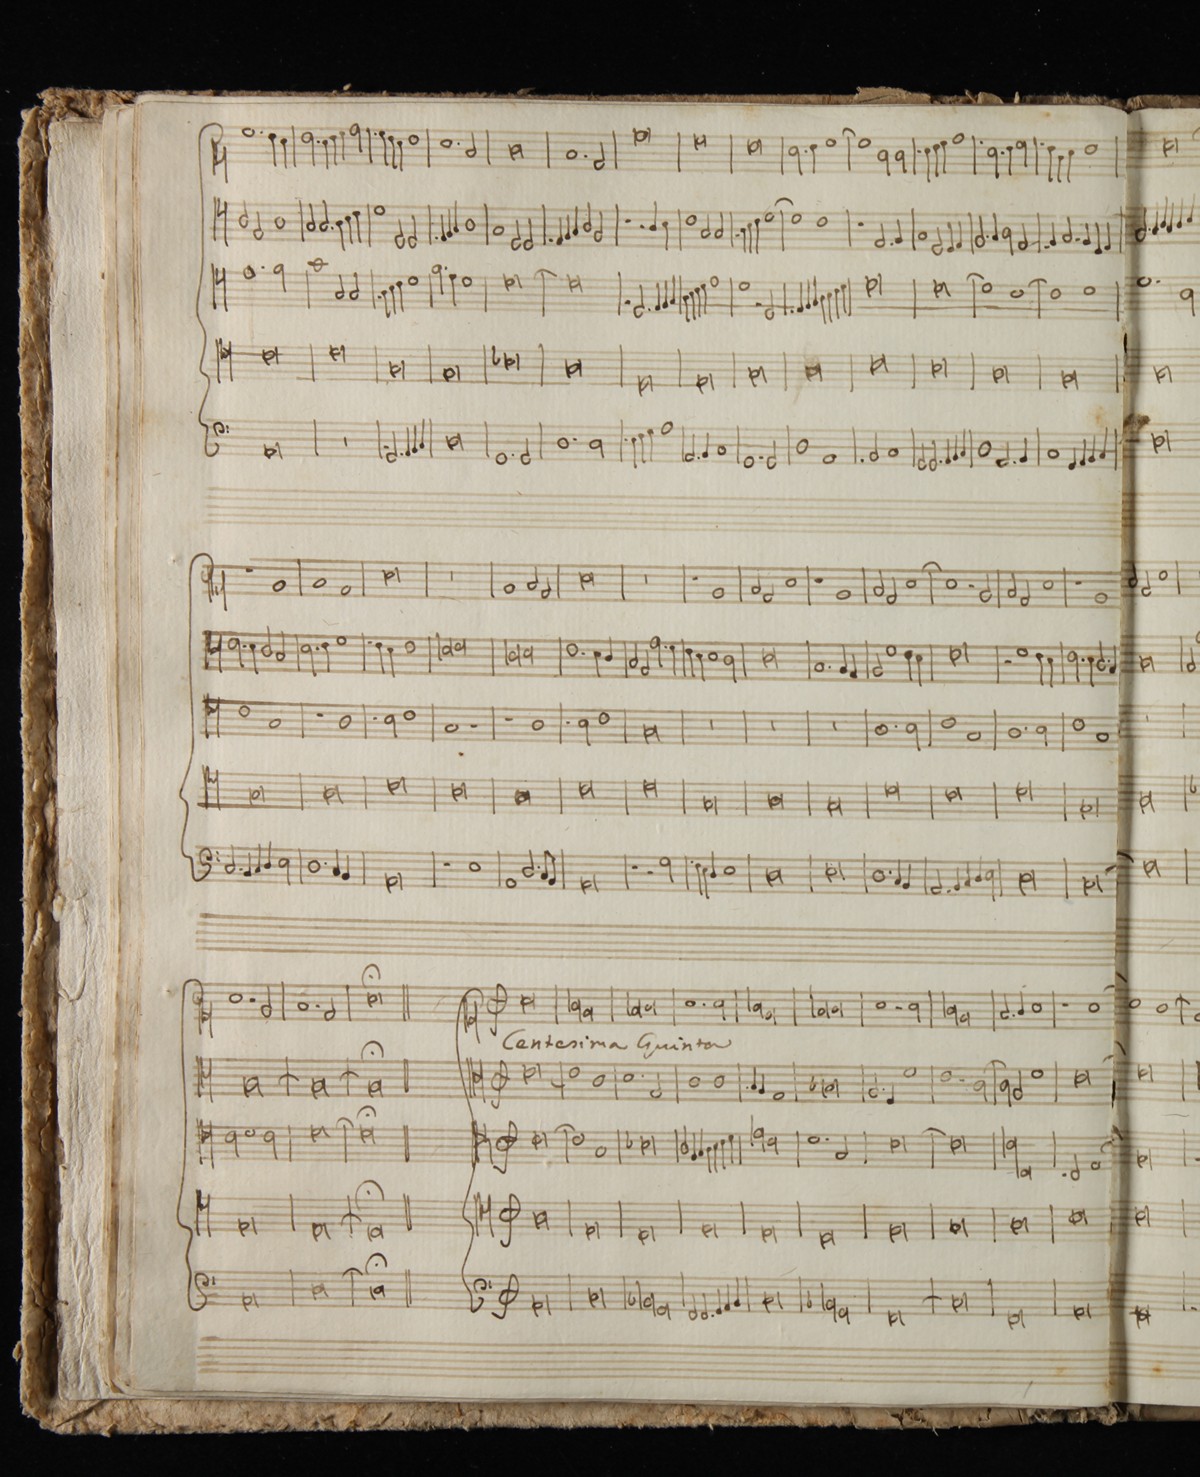 Centesima Quinta